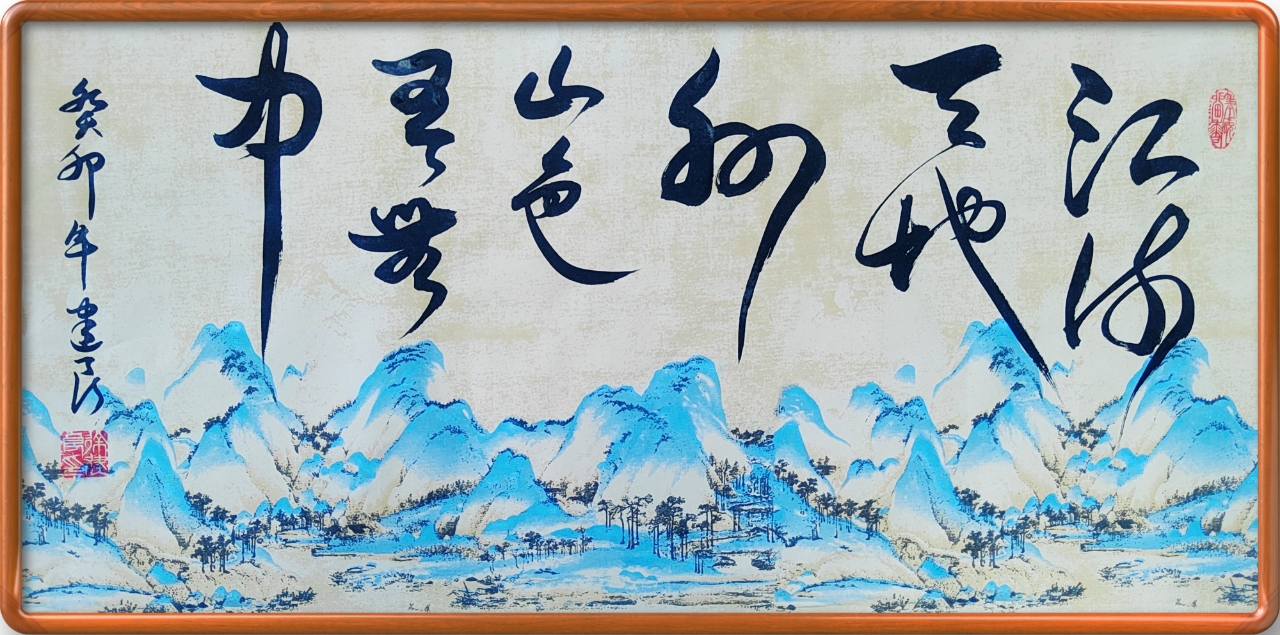 江流
天地
外
山色
有無
中
癸卯年建